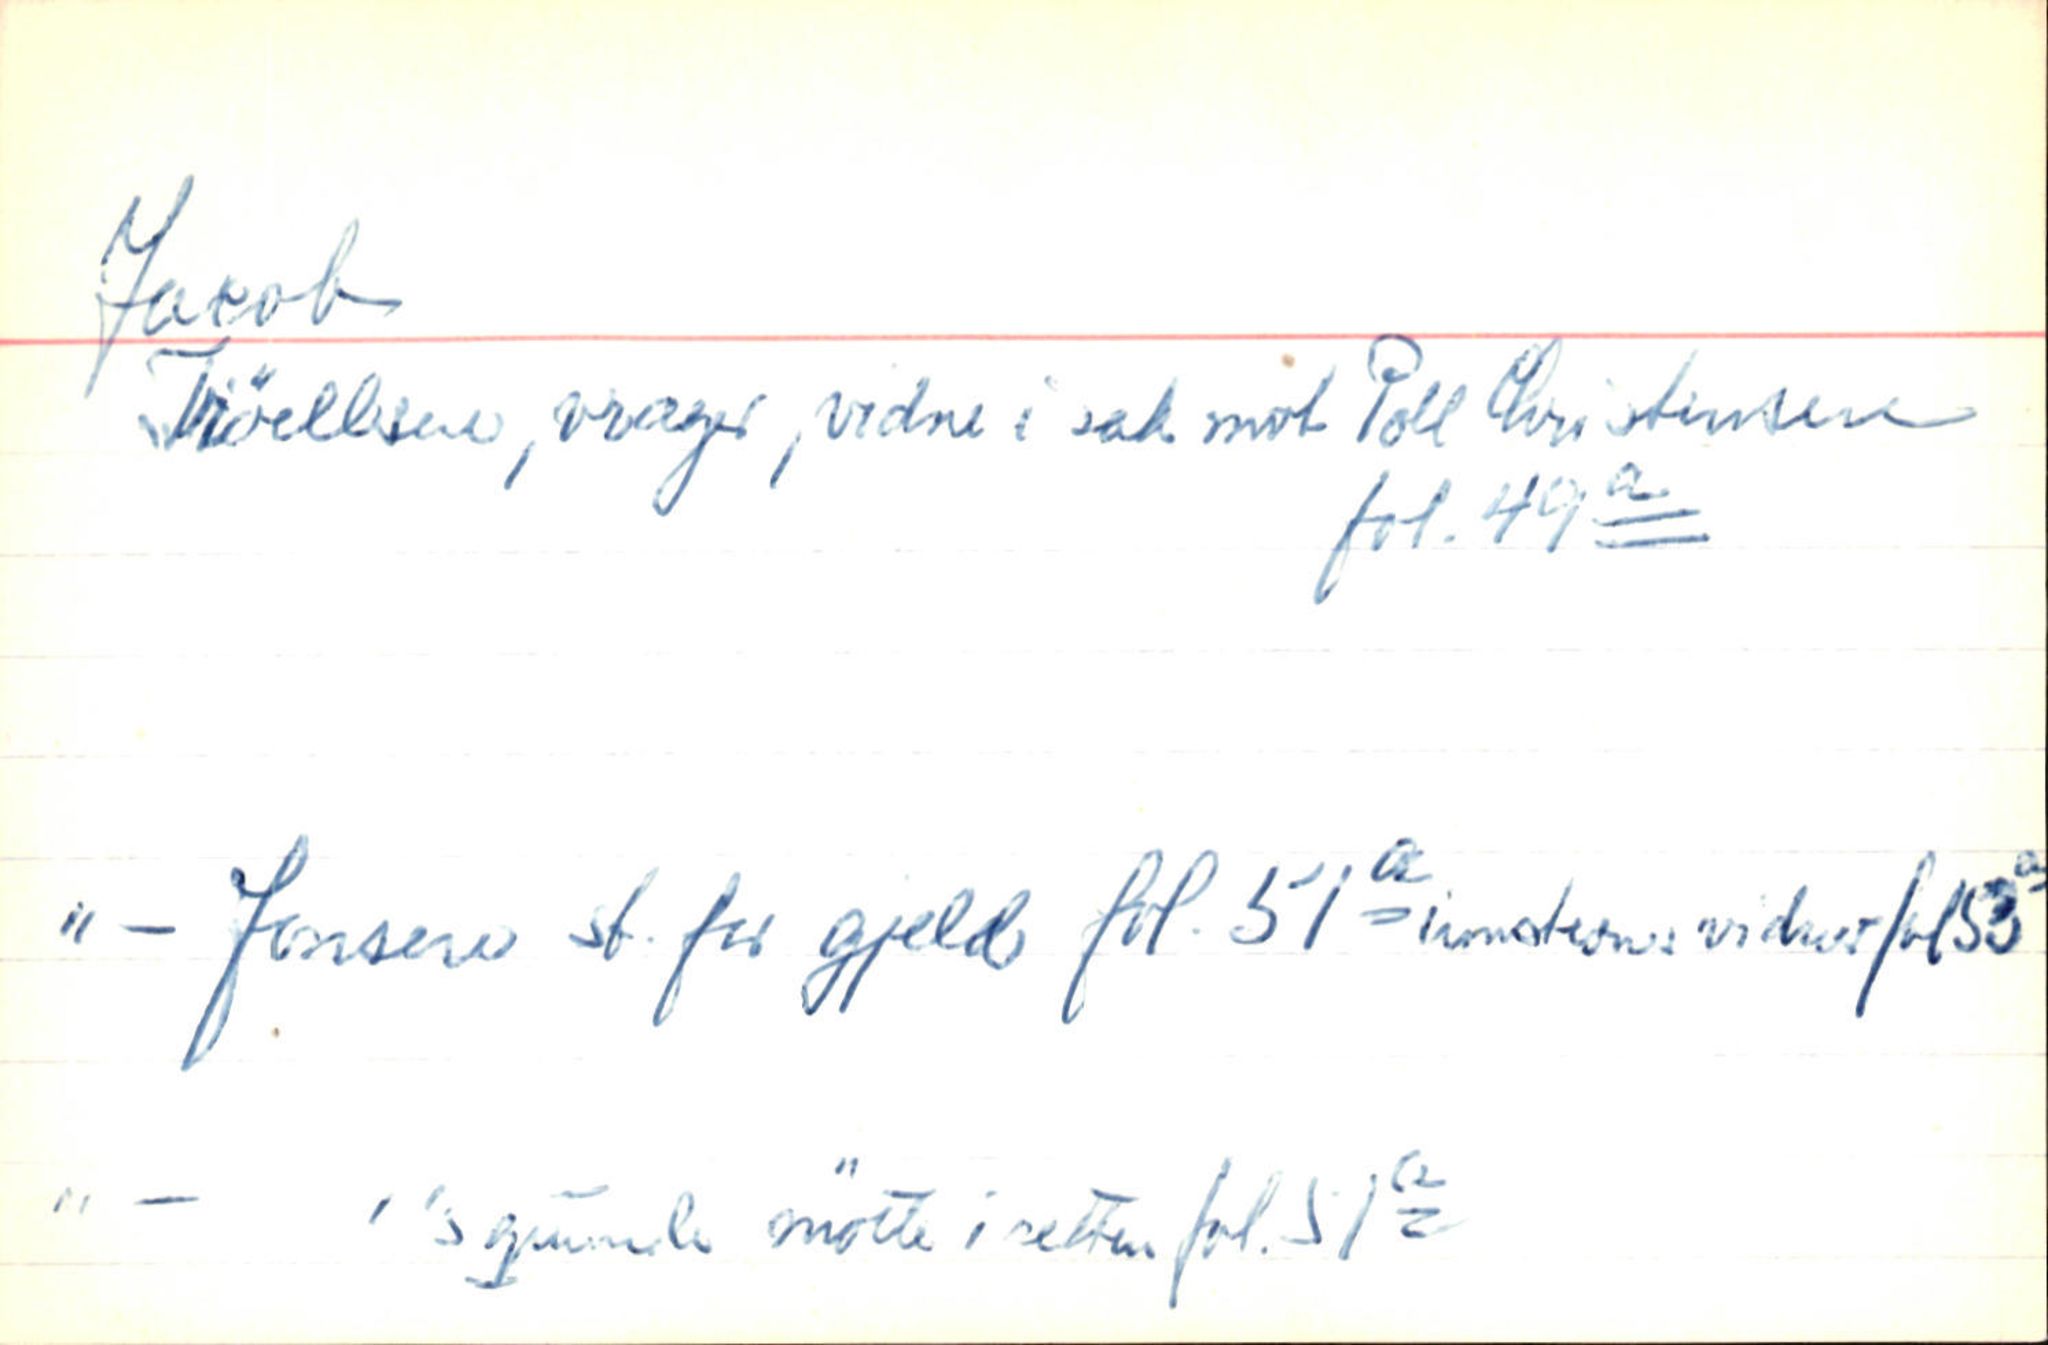 Jacob
Tröellsen, vrager, vidne i sak mot Poll Christensen
fol. 49 a
" - Jonsen st. for gjeld fol. 51 a vidner fol 53 a
" - " 's qvinde mötte i retten fol. 51 a